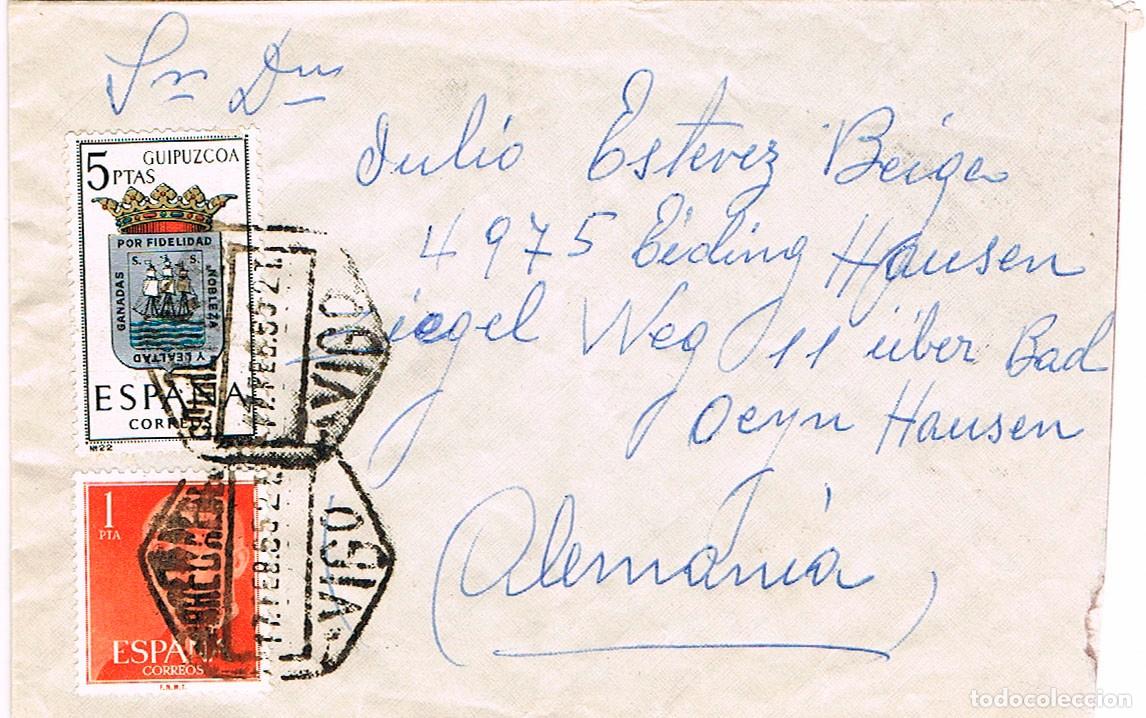 Sr Dn
Julio Estevez Beiga
4975 Eiding Hausen
Siegel Weg 11 über Bad
Oeyn Hausen
(Alemania)
5 PTAS
GUIPUZCOA
POR FIDELIDAD
GANADAS
NOBLEZA
Y LEALTAD
ESPAÑA
CORREOS
Nº22
VIGO
1
PTA
ESPAÑA
CORREOS
F.N.M.T.
VIGO
todocoleccion